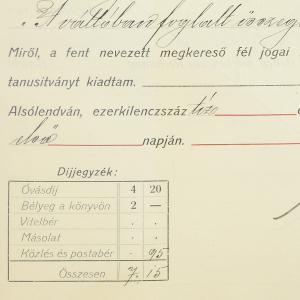 A váltóban foglalt összeg
Miről, a fent nevezett megkereső fél jogai
tanusitványt kiadtam.
Alsólendván, ezerkilenczszáz tíz
első napján.
Dijjegyzék:
Óvásdij 4 20
Bélyeg a könyvön 2 —
Vitelbér . .
Másolat . .
Közlés és postabér . 95
Összesen 7. 15